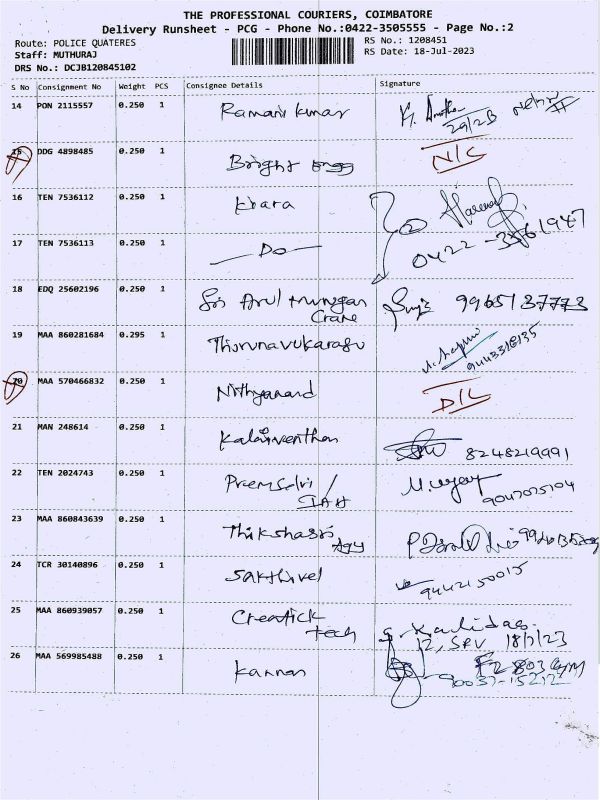 THE PROFESSIONAL COURIERS, COIMBATORE
Delivery Runsheet - PCG - Phone No.:0422-3505555 - Page No.:2
Route: POLICE QUATERES
RS No.: 1208451
Staff: MUTHURAJ
RS Date: 18-Jul-2023
DRS No.: DCJB120845102
S No Consignment No Weight PCS Consignee Details Signature
14 PON 2115557 0.250 1 Ramani kumar
29/23
15 DDG 4898485 0.250 1 Bright engg N/C
16 TEN 7536112 0.250 1 Kiara
17 TEN 7536113 0.250 1 — Do — 0422
18 EDQ 25602196 0.250 1 Sri Arul murugan
Crane
9965137773
19 MAA 860281684 0.295 1 Thirunavukarasu
9443318135
20 MAA 570466832 0.250 1 Nithyanand D/L
21 MAN 248614 0.250 1 8248219991
22 TEN 2024743 0.250 1 Premselvi /
23 MAA 860843639 0.250 1
Agy
24 TCR 30140896 0.250 1 Sakthivel 9442150015
25 MAA 860939057 0.250 1 Creatick
tech
S. Kalidas.
12, SRV 18/7/23
26 MAA 569985488 0.250 1 Kannan
90037-15212